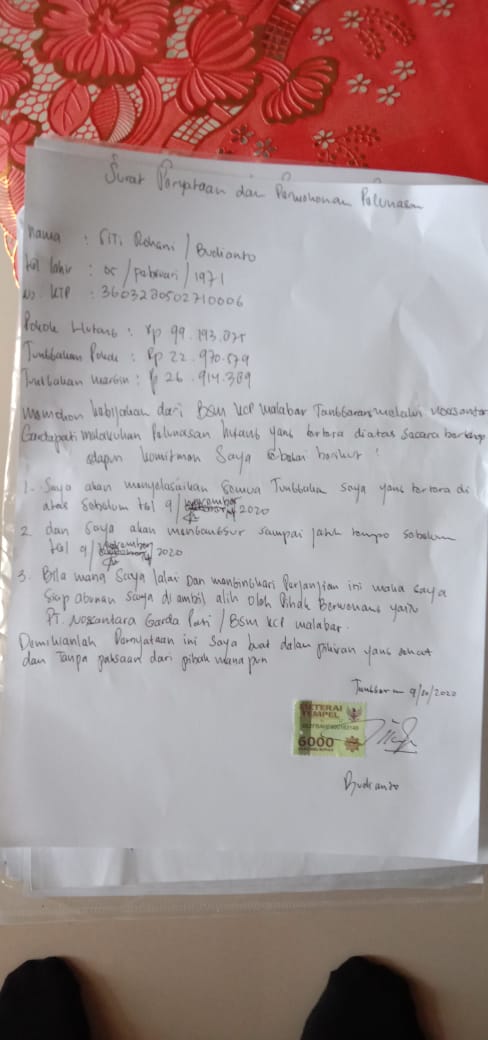 Surat Pernyataan dan Permohonan Pelunasan
Nama : SITI Rohani / Budianto
tgl lahir : 05 / Febuari / 1971
No. KTP : 3603280502710006
Pokok Hutang : Rp 99.193.825
Tunggakan Pokok : Rp 22.970.579
Tunggakan margin : Rp 26.914.389
Memohon kebijakan dari BSM KCP malabar Tanggerang melalui Nossantara
Gardapati melakukan Pelunasan hutang yang tertera diatas secara bertahap
adapun komitmen Saya sebagai berikut :
1. Saya akan menyelesaikan semua Tunggakan saya yang tertera di
atas sebelum tgl 9/November 2020
2. dan saya akan mengangsur sampai jatuh tempo sebelum
tgl 9/November 2020
3. Bila mana saya lalai Dan mengingkari Perjanjian ini maka saya
siap agunan saya di ambil alih oleh Pihak Berwenang yaitu
PT. Nossantara Garda Pati / BSM KCP malabar.
Demikianlah Pernyataan ini saya buat dalam pikiran yang sehat
dan Tanpa paksaan dari pihak mana pun
Tanggerang 9/10/2020
METERAI
TEMPEL
6000
Budianto